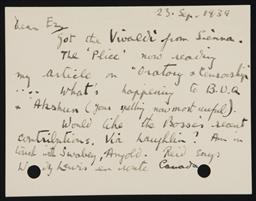 23. Sep. 1939
Dear Ez,
Got the Vivaldi from Sienna.
The 'Plice' now reading
my article on "Oratory & Censorship"
.... What's happening to B.U.Q
& 'Akshun' (your spelling now most useful).
Would like the Bosse's recent
contributions. Via Laughlin? Am in
touch with Swabey, Angold. Reid says
Wyndy Lewis en route Canada